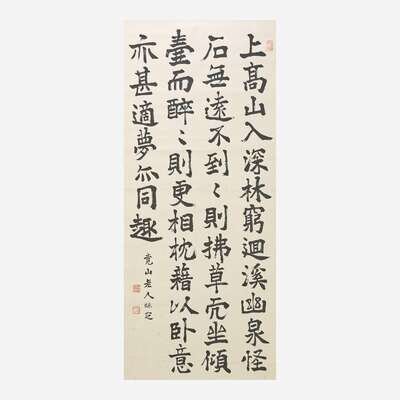 上髙山入深林窮迴溪幽泉怪
石無遠不到〻則拂草而坐傾
壷而醉〻則更相枕藉以臥意
亦甚適夢亦同趣
竟山老人